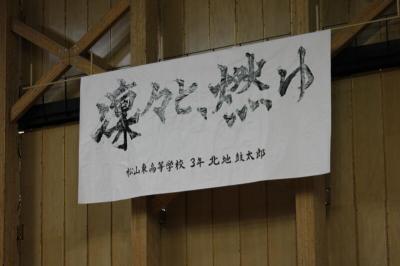 凜々と、燃ゆ
松山東高等学校 3年 北地 鼓太郎